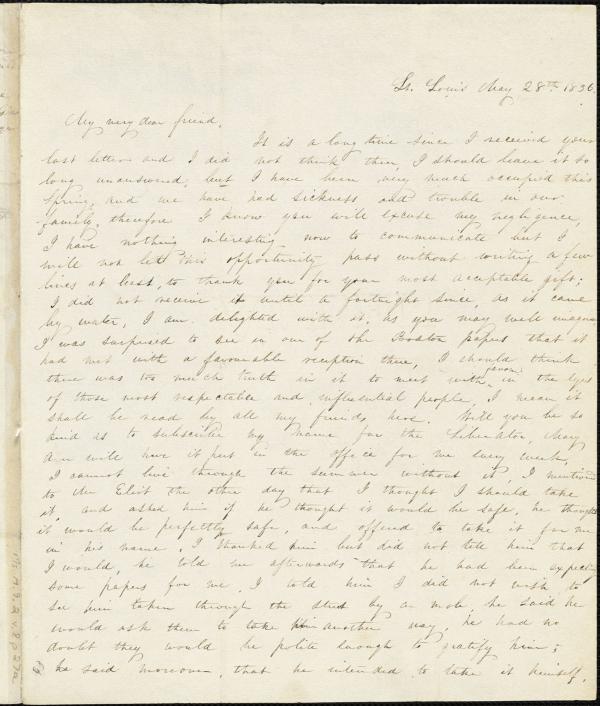 St. Louis May 28th 1836.
My very dear friend,
It is a long time since I received your
last letter and I did not think then I should leave it so
long unanswered, but I have been very much occupied this
spring, and we have had sickness and trouble in our
family, therefore I know you will excuse my negligence,
I have nothing interesting now to communicate but I
will not let this opportunity pass without writing a few
lines at least, to thank you for your most acceptable gift;
I did not receive it until a fortnight since, as it came
by water, I am delighted with it, as you may well imagine
I was surprised to see in one of the Boston papers that it
had met with a favourable reception there, I should think
there was too much truth in it to meet with favour in the eyes
of those most respectable and influential people, I mean it
shall be read by all my friends here. Will you be so
kind as to subscribe my name for the Liberator, May
Ann will have it put in the office for me every week,
I cannot live through the summer without it, I mentioned
to Mr Eliot the other day that I thought I should take
it, and asked him if he thought it would be safe, he thought
it would be perfectly safe, and offered to take it for me
in his name, I thanked him but did not tell him that
I would, he told me afterwards that he had been expecting
some papers for me, I told him I did not wish to
see him taken through the street by a mob, he said he
would ask them to take him another way, he had no
doubt they would be polite enough to gratify him;
he said moreover, that he intended to take it himself,